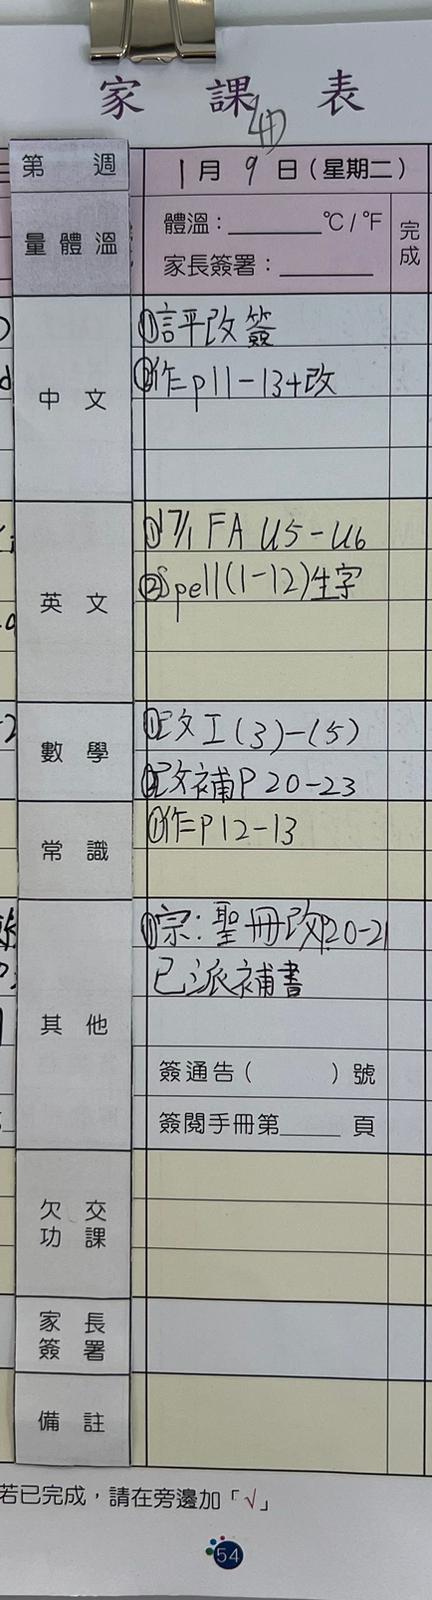 家 課 表
第 週
1月9日(星期二)
量體溫
體溫：________℃/℉
家長簽署：________
完成
中 文
①評改簽
②作=p11-13+改
英 文
①17/1 FA U5-U6
②Spell(1-12)生字
數 學
①改工(3)-(5)
②改補P20-23
常 識
①作=P12-13
其 他
①宗:聖冊改P20-21
已派補書
簽通告( )號
簽閱手冊第_____頁
欠 交
功 課
家 長
簽 署
備 註
若已完成，請在旁邊加「√」
54